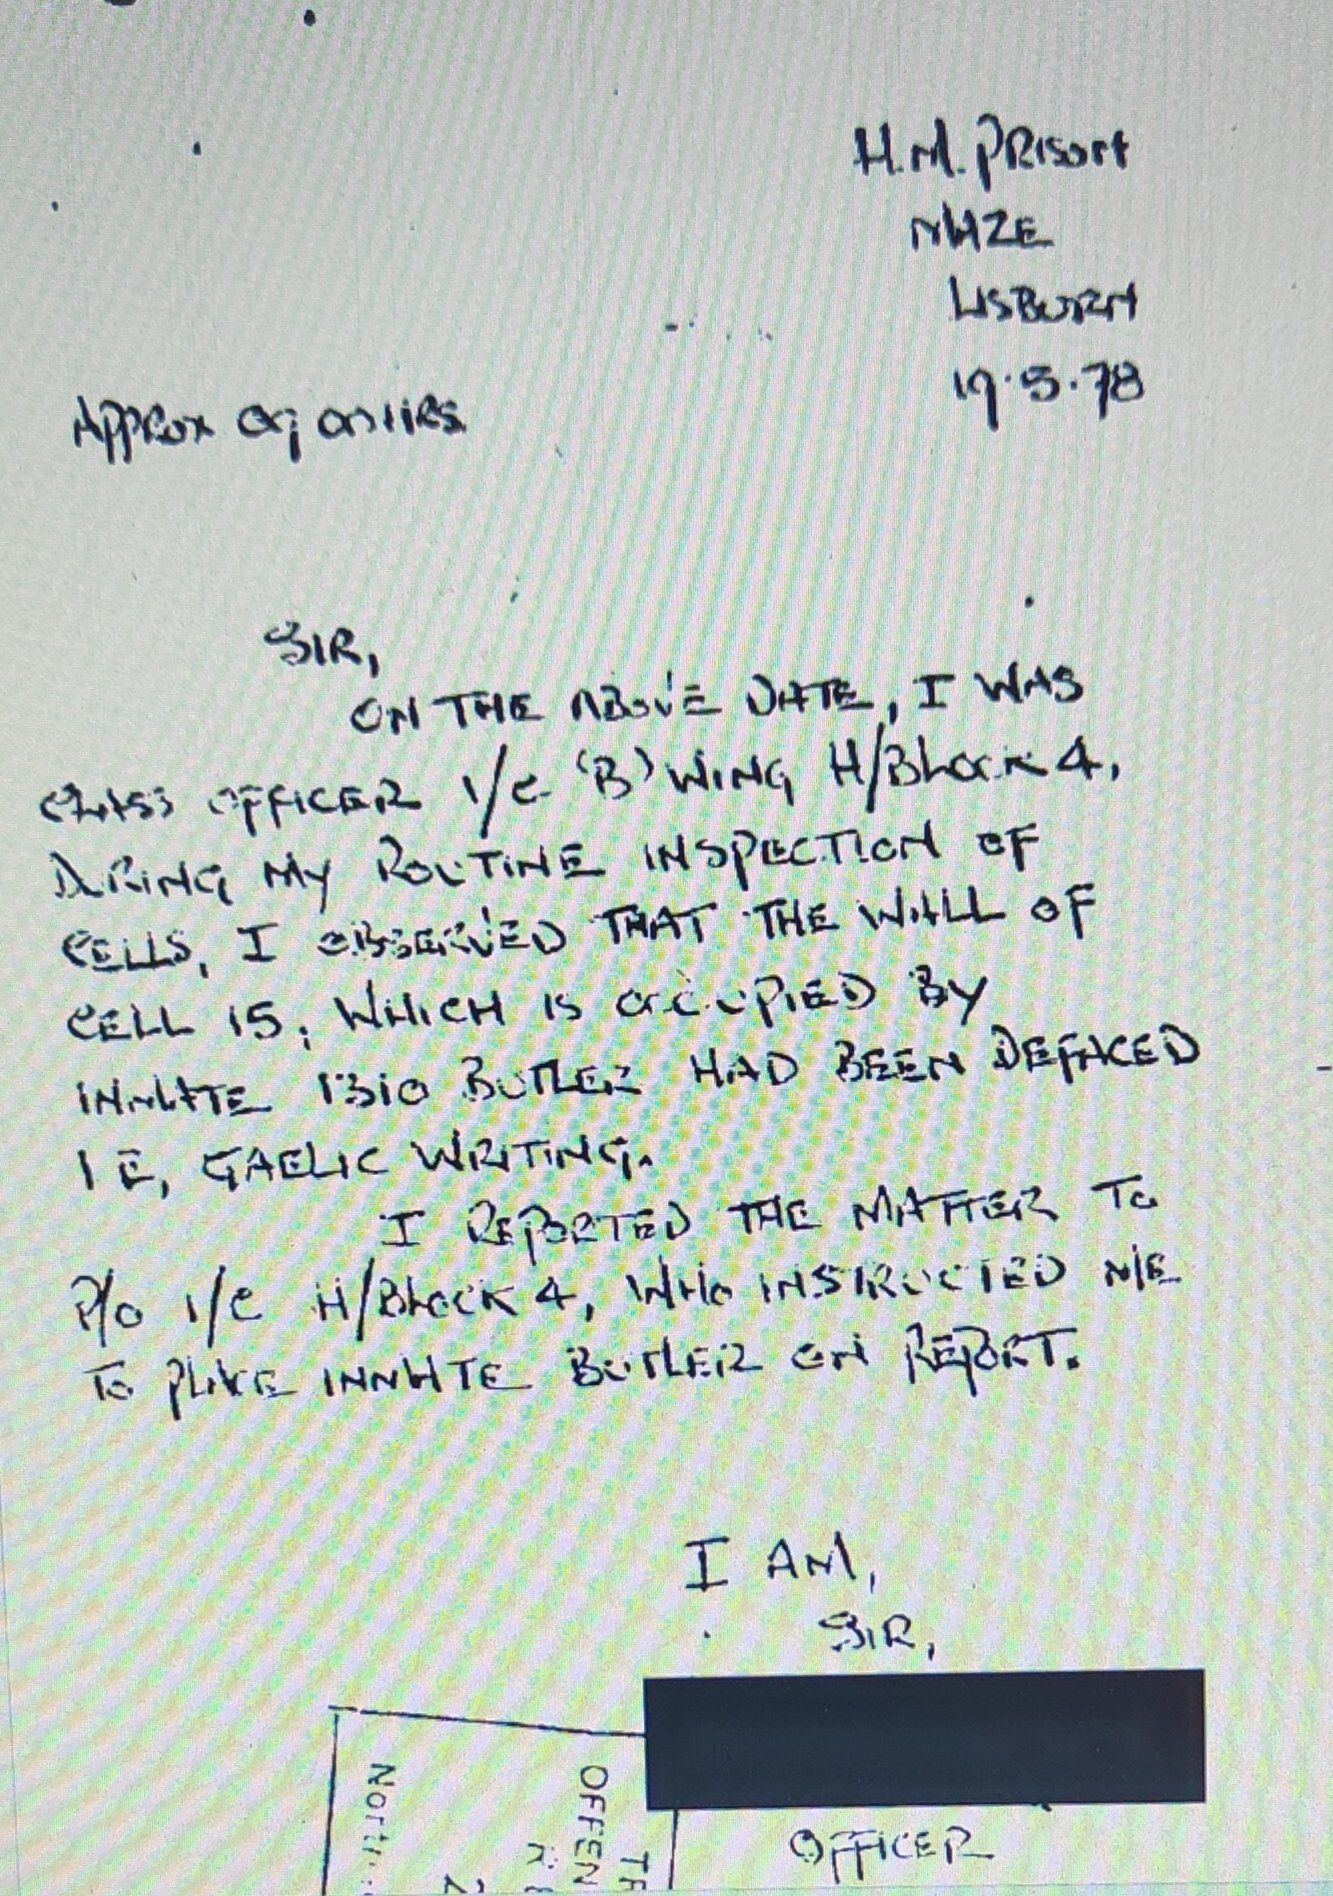 H.M. PRISON
MAZE
LISBURN
19.5.78
APPROX
SIR,
ON THE ABOVE DATE, I WAS
CLASS OFFICER I/C 'B' WING H/BLOCK 4,
DURING MY ROUTINE INSPECTION OF
CELLS, I OBSERVED THAT THE WALL OF
CELL 15, WHICH IS OCCUPIED BY
INMATE 1310 BUTLER HAD BEEN DEFACED
I E, GAELIC WRITING.
I REPORTED THE MATTER TO
P/O I/C H/BLOCK 4, WHO INSTRUCTED ME
TO PLACE INMATE BUTLER ON REPORT.
I AM,
SIR,
OFFICER
OFFEN